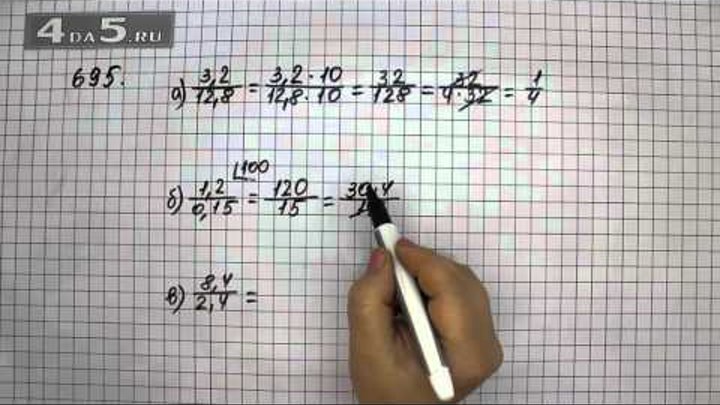 4 DA 5.RU
695.
а) 3,2/12,8 = 3,2·10/12,8·10 = 32/128 = 32/4·32 = 1/4
б) 1,2/0,15 = ⌊100 120/15 = 30·4
в) 8,4/2,4 =